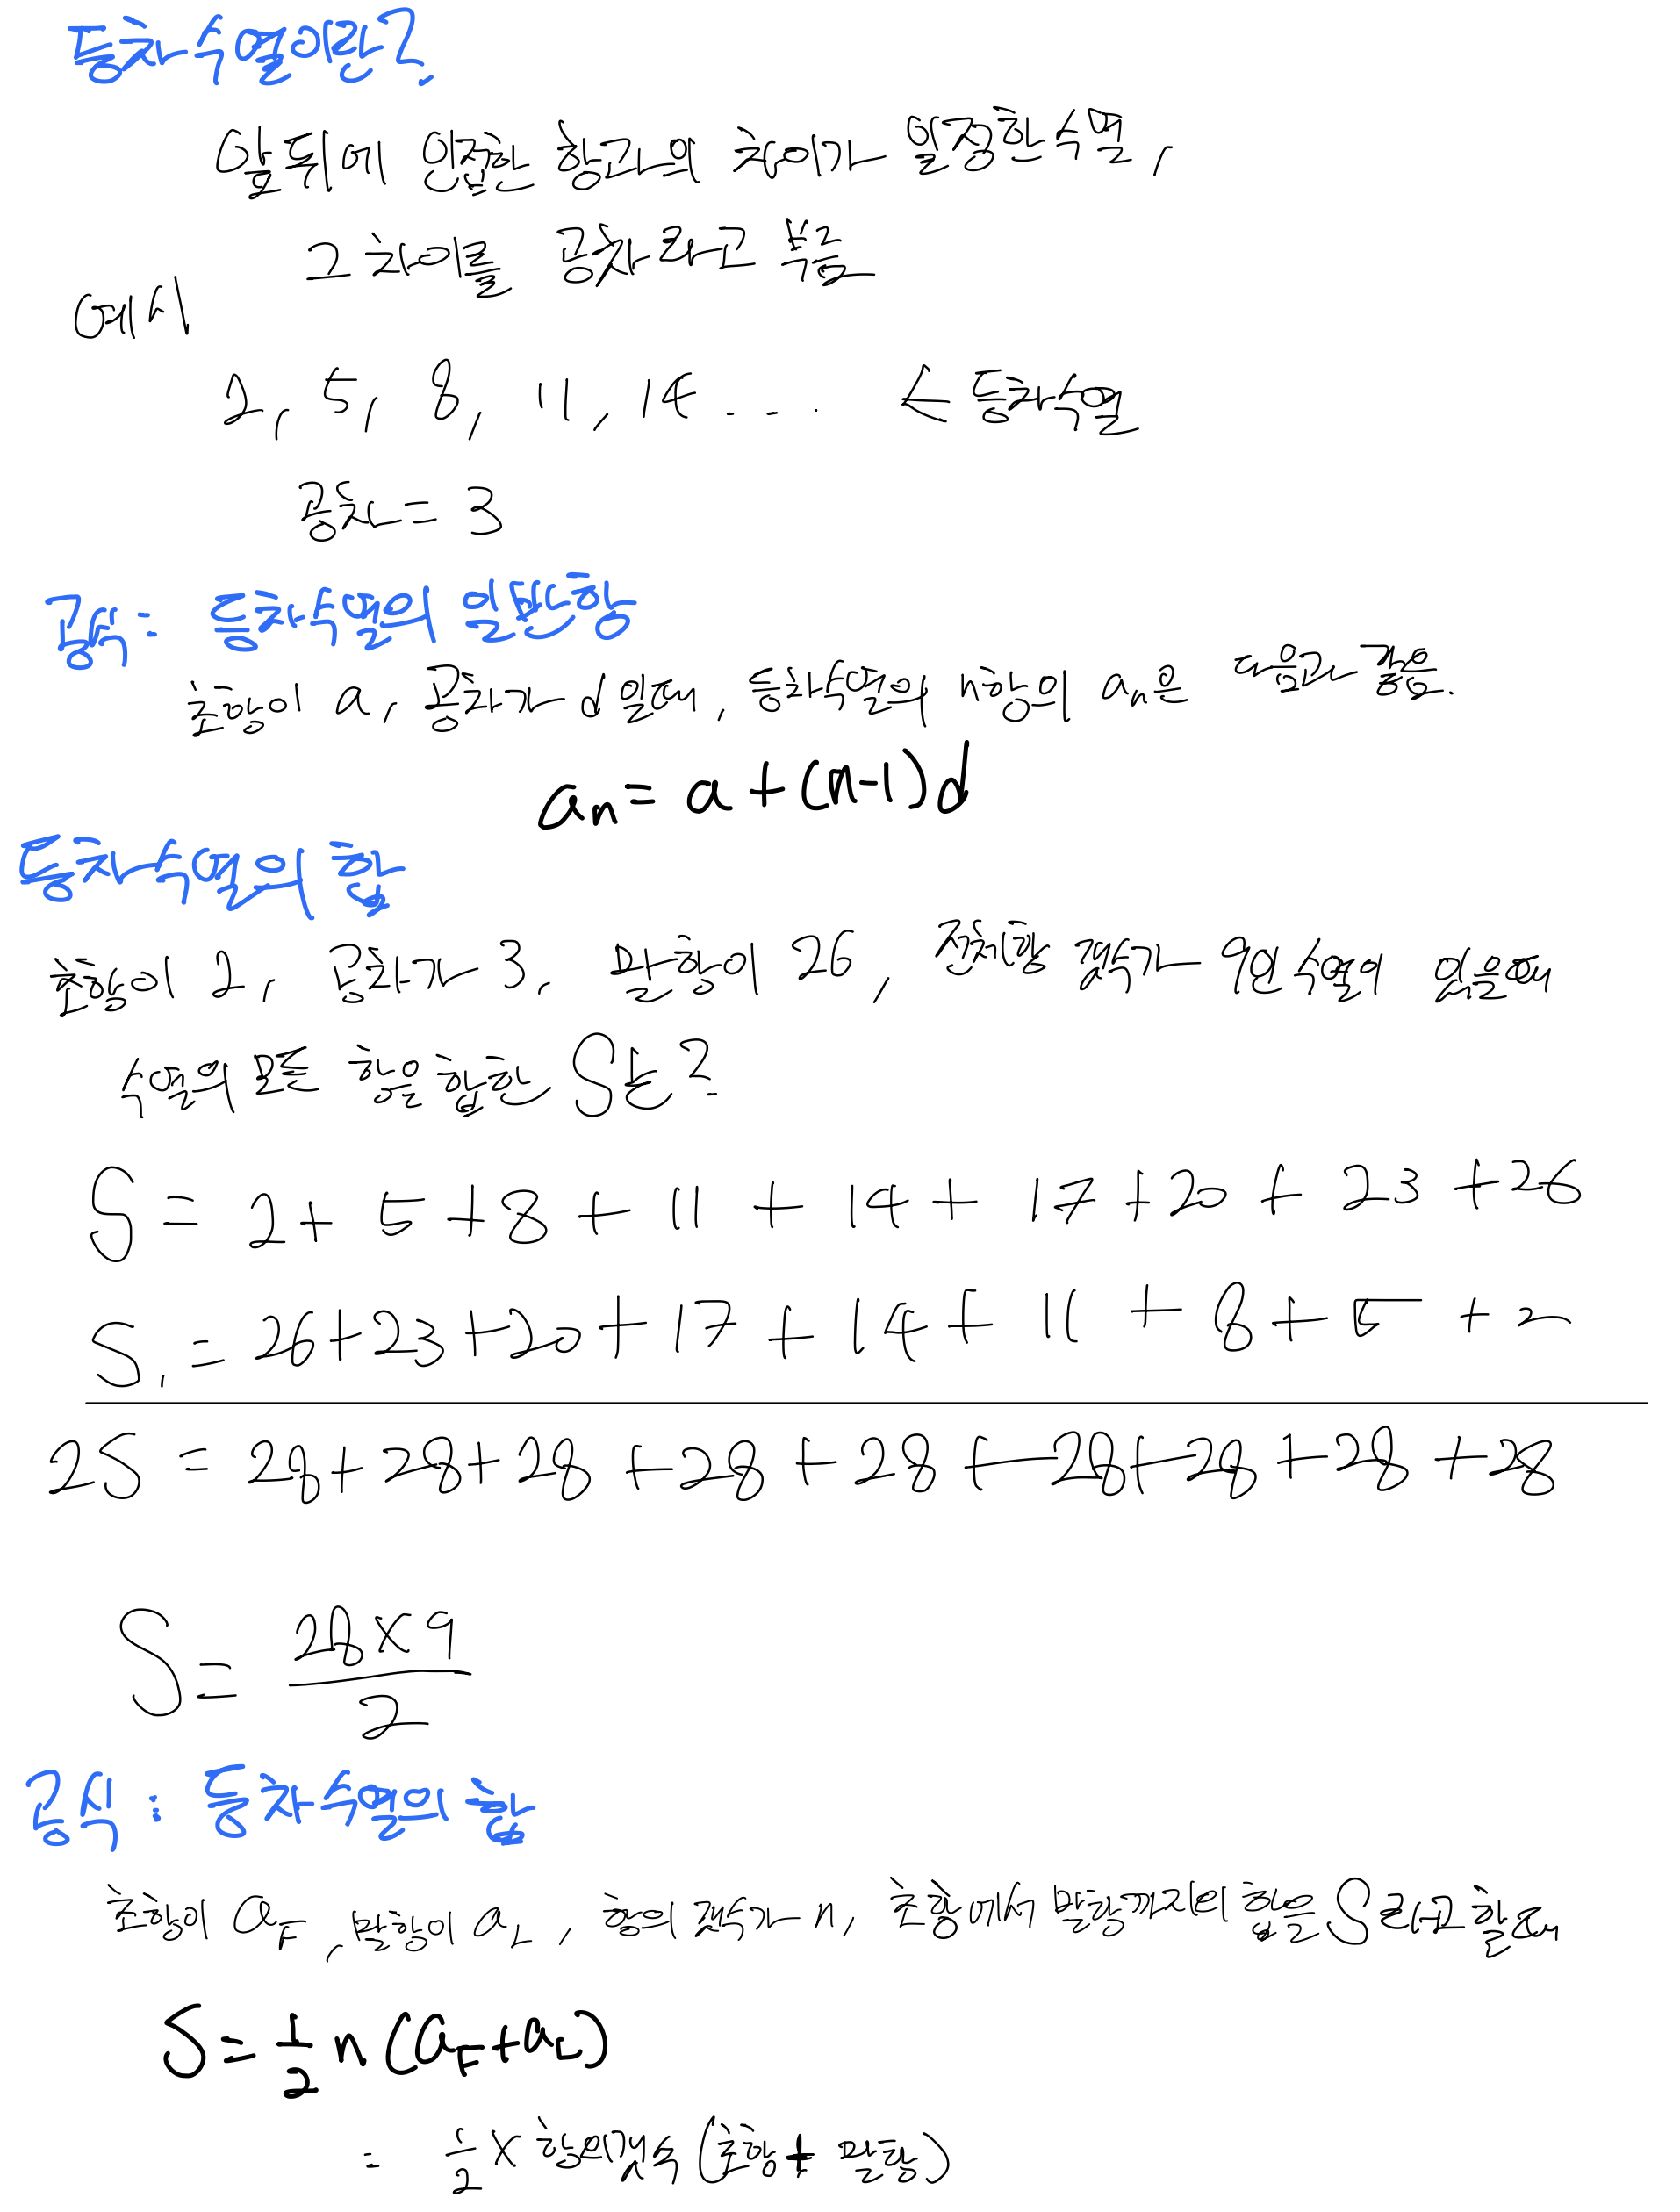 등차수열이란?
앞뒤에 인접한 항과의 차이가 일정한 수열,
그 차이를 공차라고 부름
예시
2, 5, 8, 11, 14 ... < 등차수열
공차 = 3
공식: 등차수열의 일반항
초항이 a, 공차가 d일때, 등차수열의 n항의 aₙ은 다음과 같음.
aₙ = a + (n-1)d
등차수열의 합
초항이 2, 공차가 3, 말항이 26, 전체항 갯수가 9인 수열이 있을때
수열의 모든 항을 합한 S는?
S = 2 + 5 + 8 + 11 + 14 + 17 + 20 + 23 + 26
S, = 26 + 23 + 20 + 17 + 14 + 11 + 8 + 5 + 2
2S = 28 + 28 + 28 + 28 + 28 + 28 + 28 + 28 + 28
S = 28×9 / 2
공식: 등차수열의 합
초항이 a_F, 말항이 a_L, 항의 갯수가 n, 초항에서 말항까지의 합을 S라고 할때
S = 1/2 n (a_F + a_L)
= 1/2 × 항의갯수 (초항 + 말항)